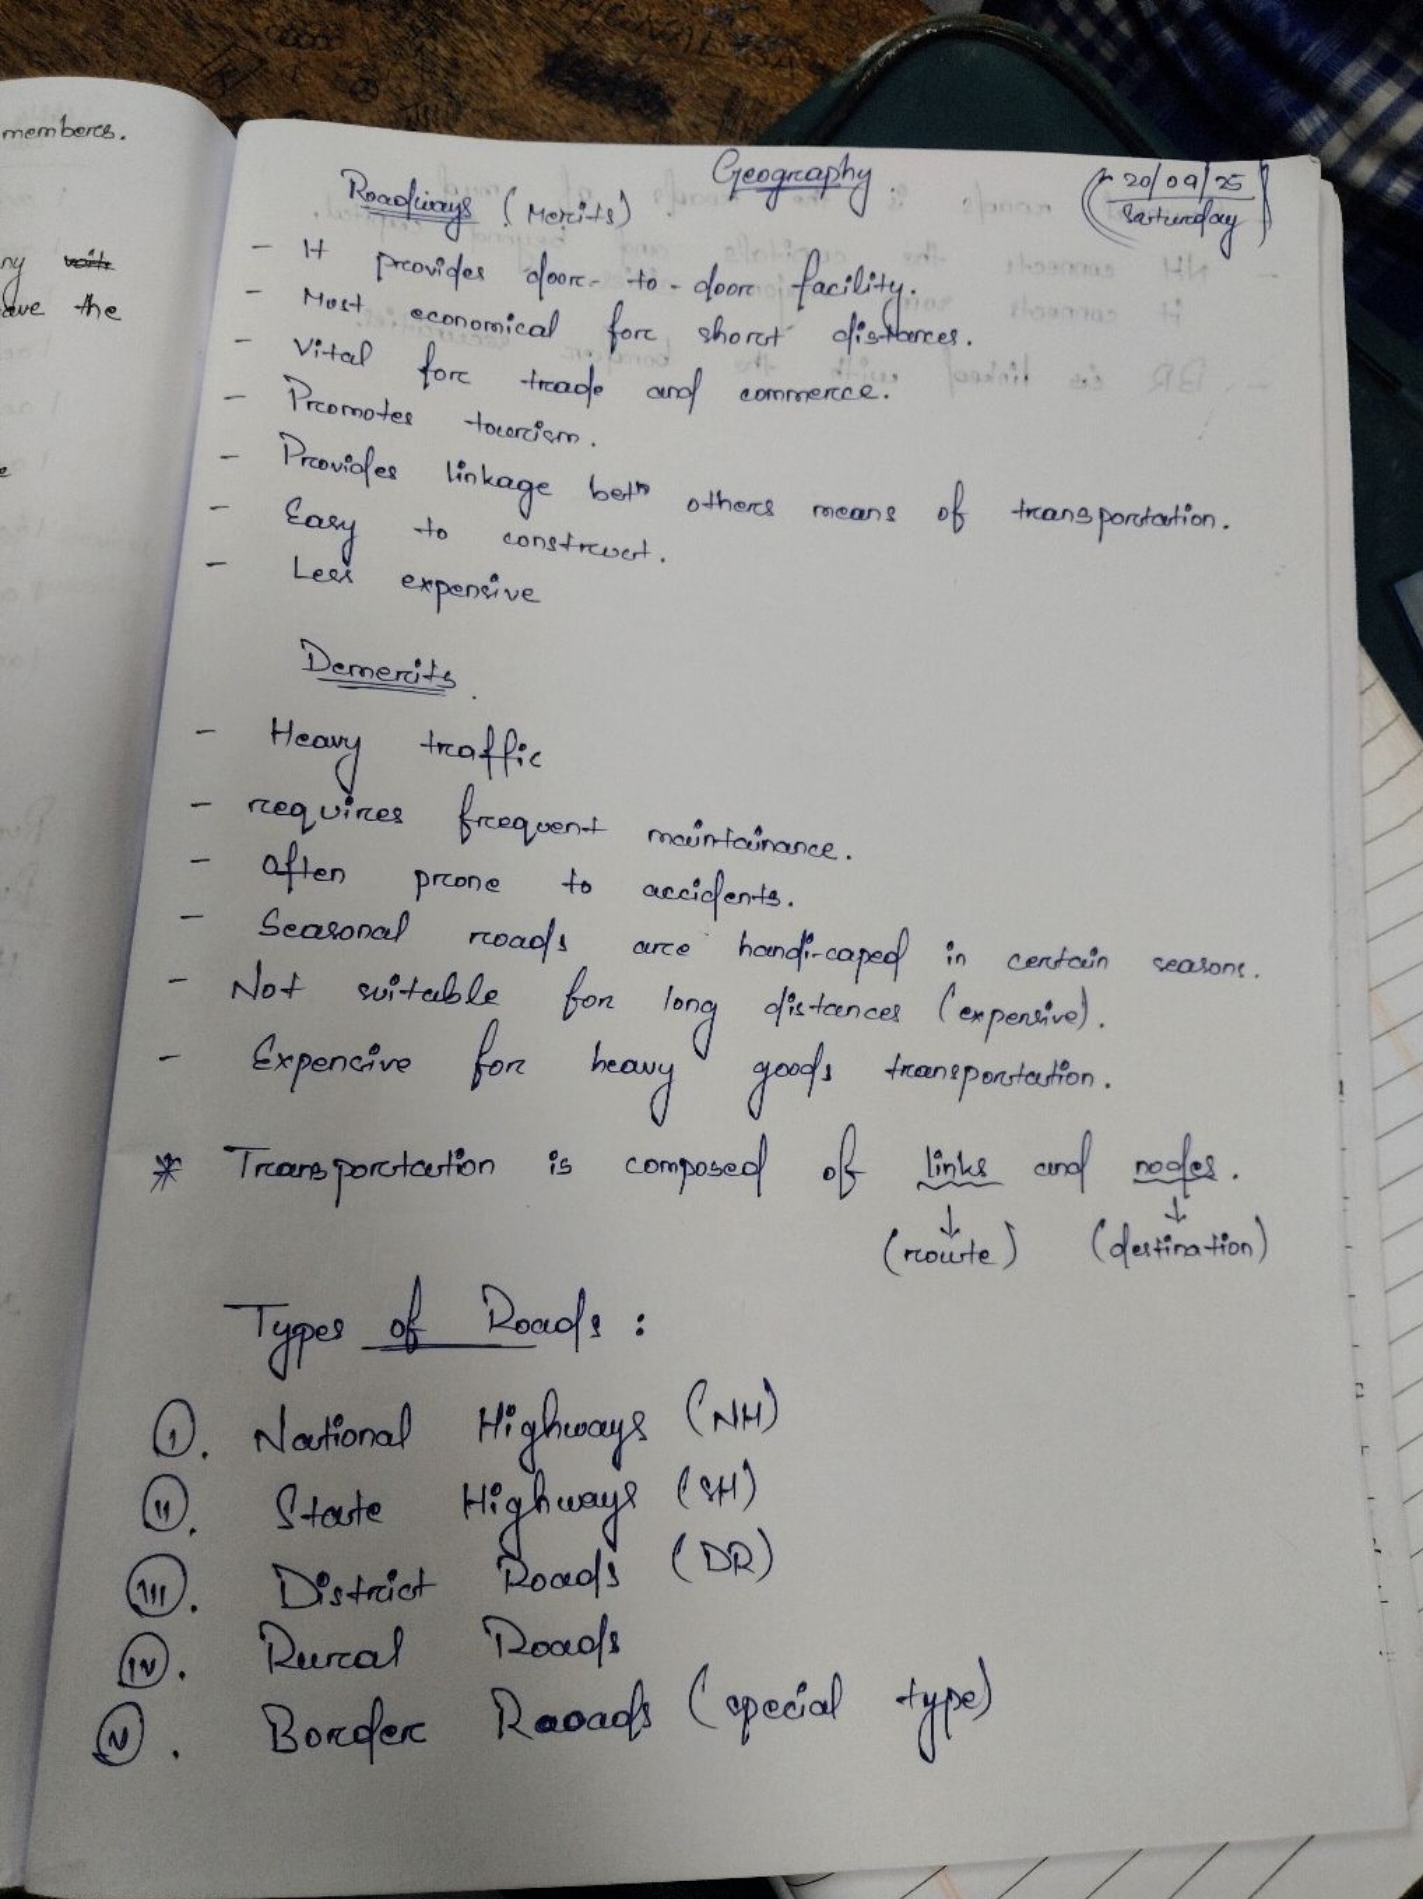 members.
ny
ave the
Geography
20/09/25
Saturday
Roadways (Merits)
- It provides door-to-door facility.
- Most economical for short distances.
- Vital for trade and commerce.
- Promotes tourism.
- Provides linkage betn others means of transportation.
- Easy to construct.
- Less expensive
Demerits
- Heavy traffic
- requires frequent maintainance.
- Often prone to accidents.
- Seasonal roads are handi-caped in certain seasons.
- Not suitable for long distances (expensive).
- Expensive for heavy goods transportation.
* Transportation is composed of links and nodes.
↓ ↓
(route) (destination)
Types of Roads :
I. National Highways (NH)
II. State Highways (SH)
III. District Roads (DR)
IV. Rural Roads
V. Border Raoads (special type)